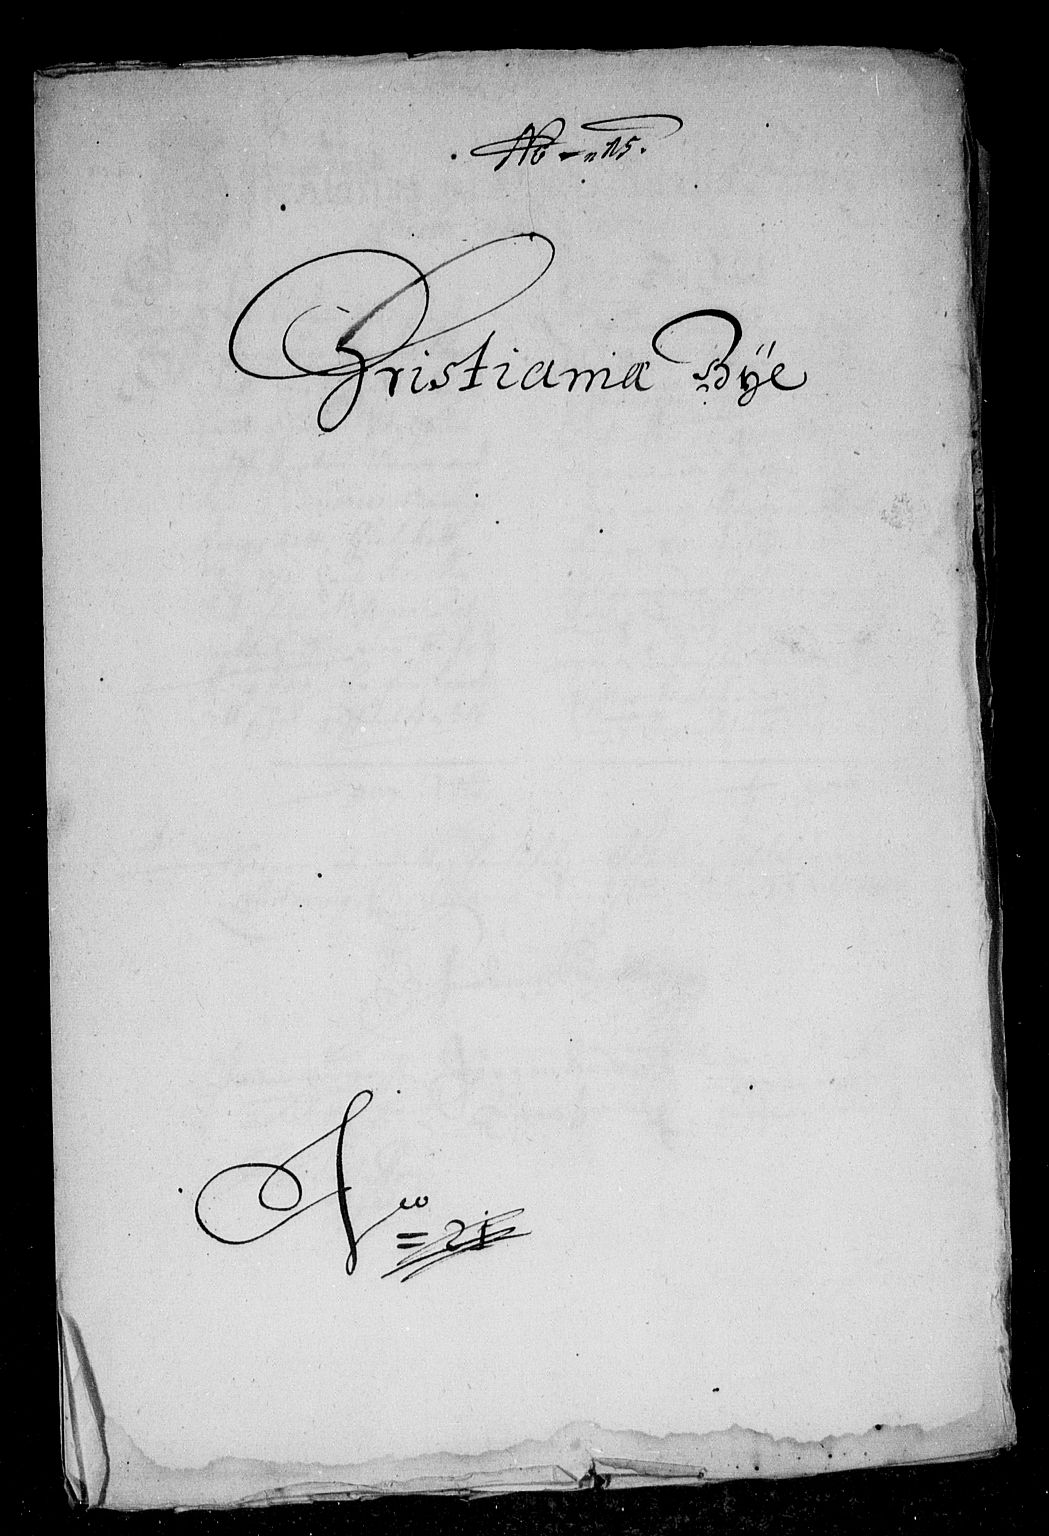 No - n 15.
Christiania Bÿe
No = 21